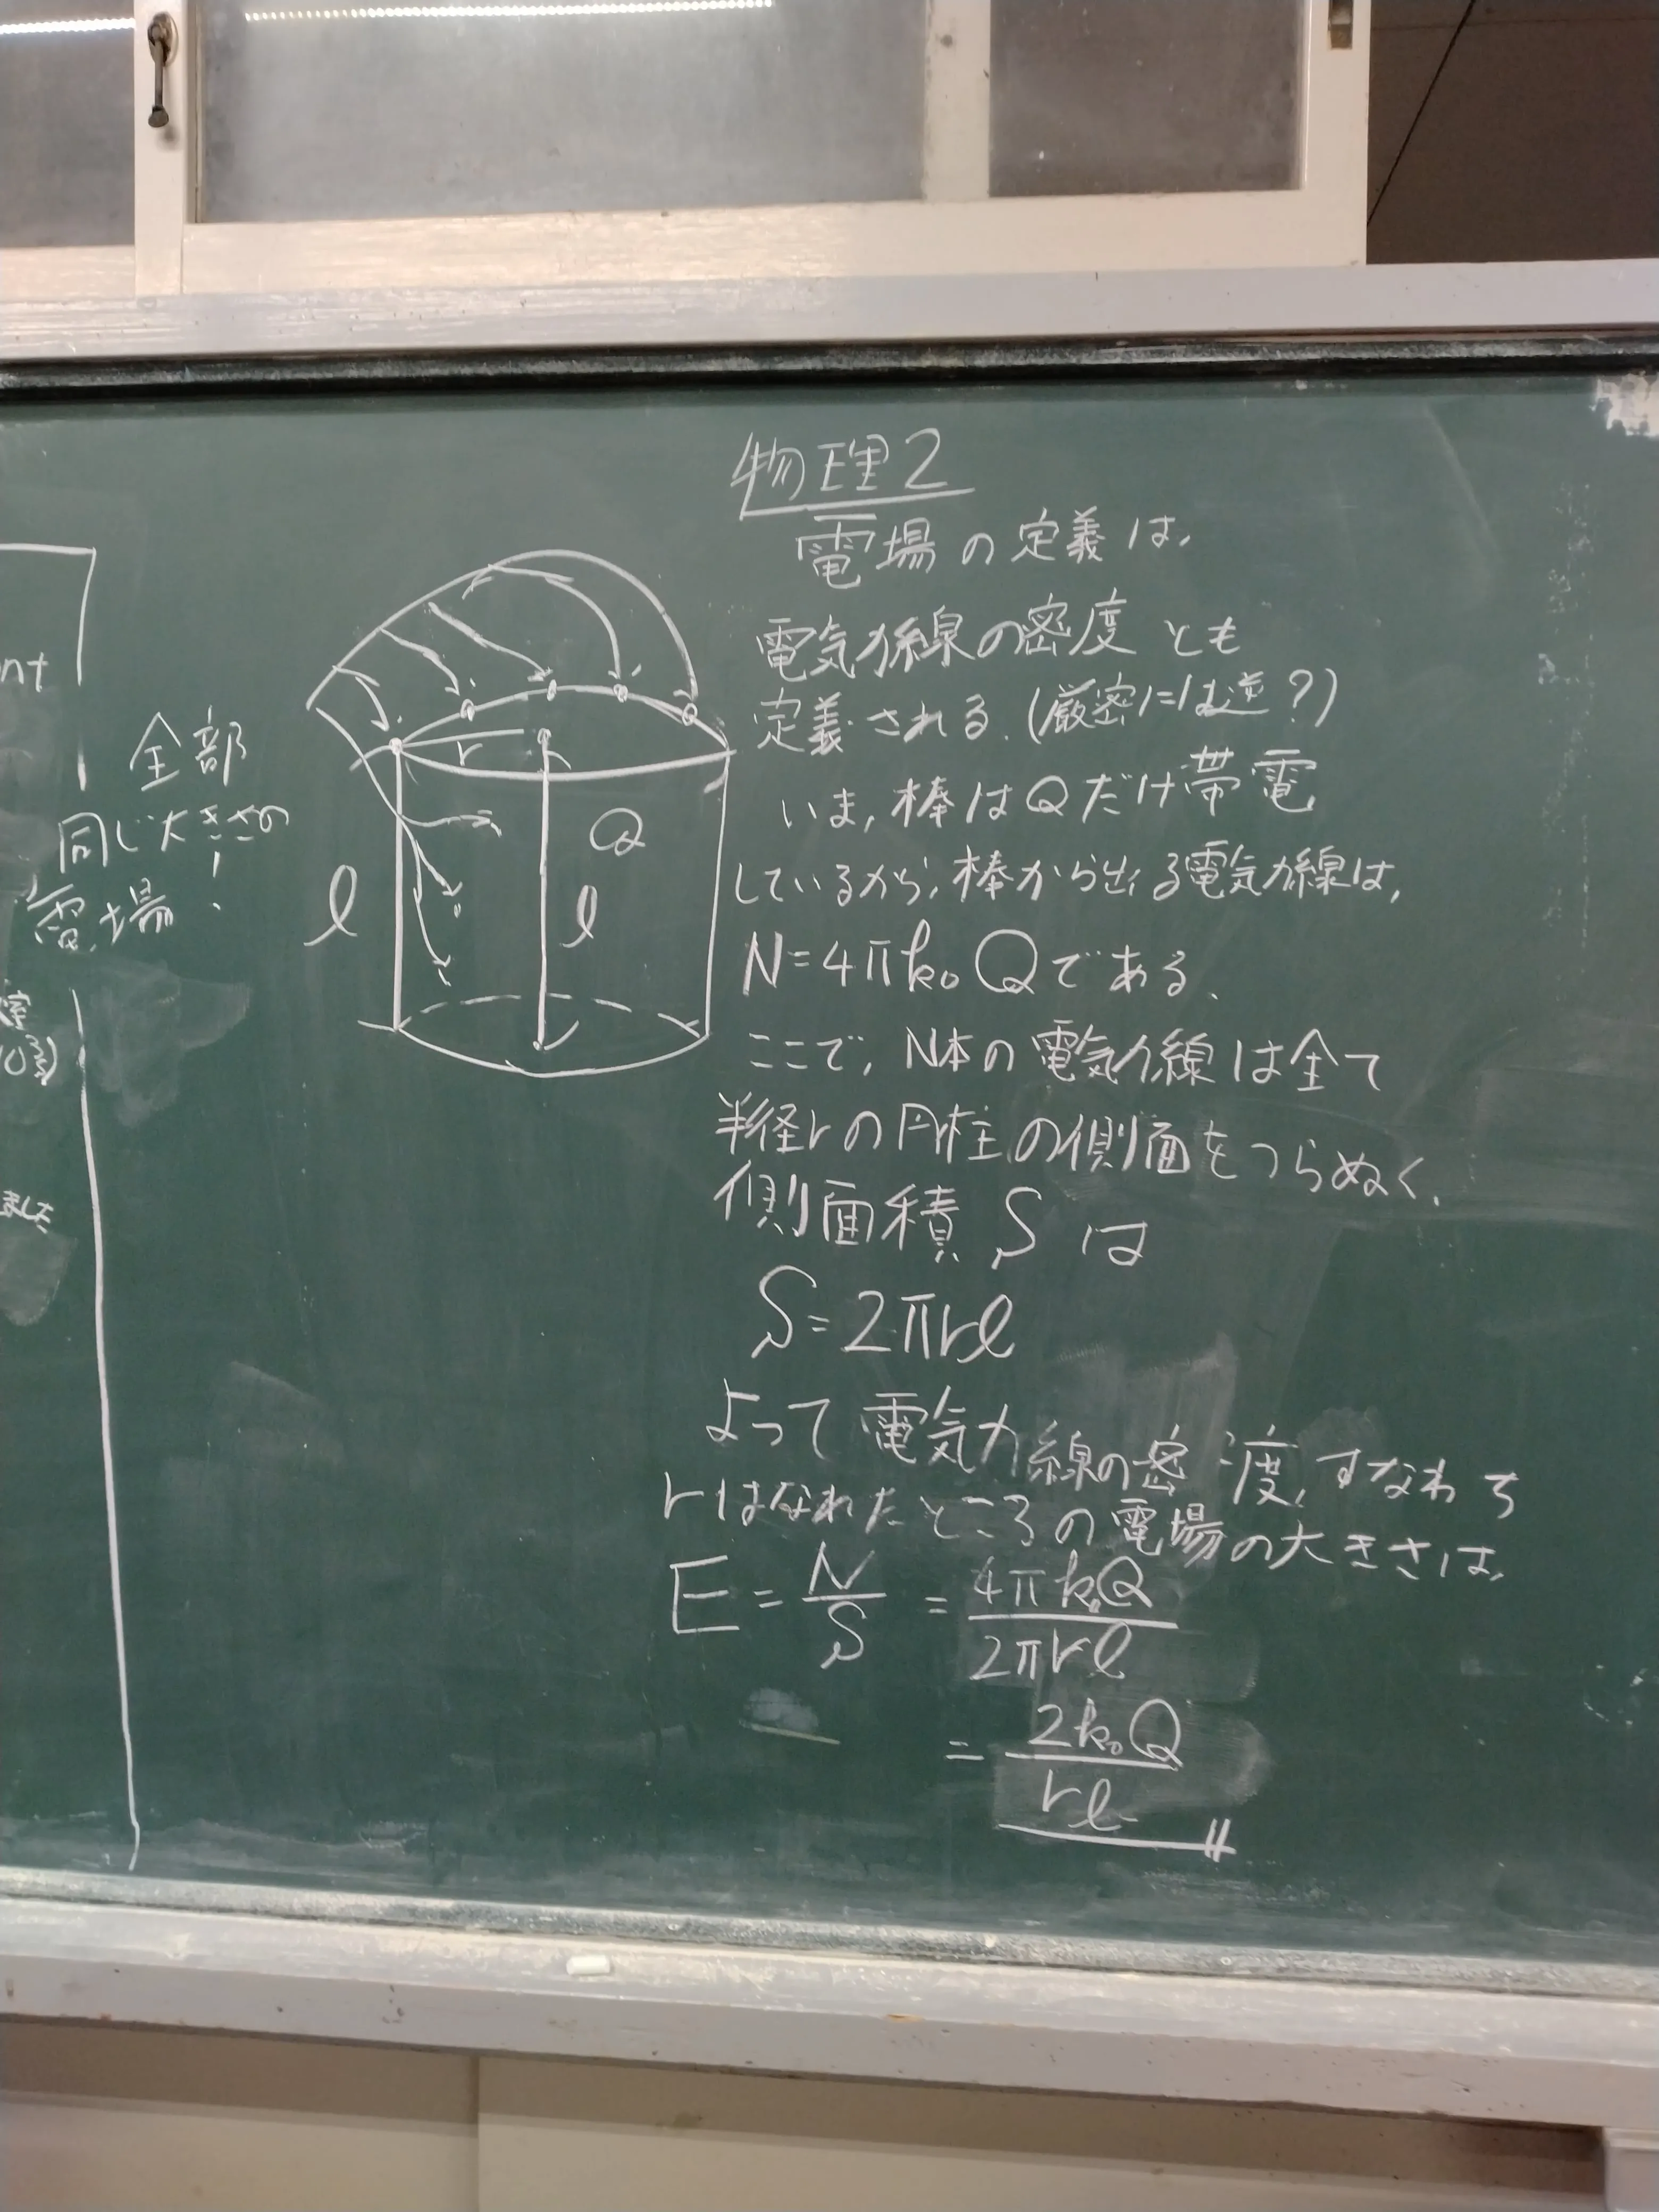 nt
全部
同じ大きさの
電場!
r
Q
l
l
ました
物理2
電場の定義は,
電気力線の密度とも
定義される.(厳密には逆?)
いま,棒はQだけ帯電
しているから,棒から出る電気力線は,
N=4πk₀Qである.
ここで,N本の電気力線は全て
半径rの円柱の側面をつらぬく.
側面積Sは
S=2πrl
よって電気力線の密度,すなわち
rはなれたところの電場の大きさは,
E = N/S = 4πk₀Q/2πrl
= 2k₀Q/rl